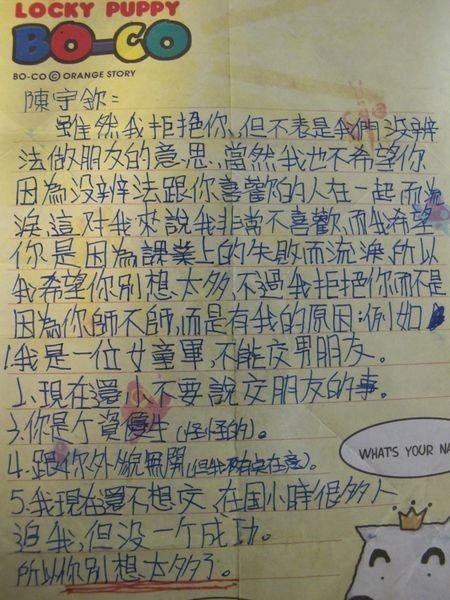 LOCKY PUPPY
BO-CO
BO-CO © ORANGE STORY
陳宇欽:
雖然我拒絕你,但不表是我們没辨
法做朋友的意思,當然我也不希望你
因為没辨法跟你喜歡的人在一起而流
淚,這对我來說我非常不喜歡,而我希望
你是因為課業上的失敗而流淚,所以
我希望你別想太多,不過我拒絕你而不是
因為你師不師,而是有我的原因:例如
1.我是一位女童軍,不能交男朋友。
2.現在還小,不要說交朋友的事。
3.你是个資優生(怪怪的)。
4.跟你外貌無關(但我有在意)。
5.我現在還不想交,在国小時很多人
追我,但没一个成功。
所以你別想太多了。
WHAT'S YOUR NA